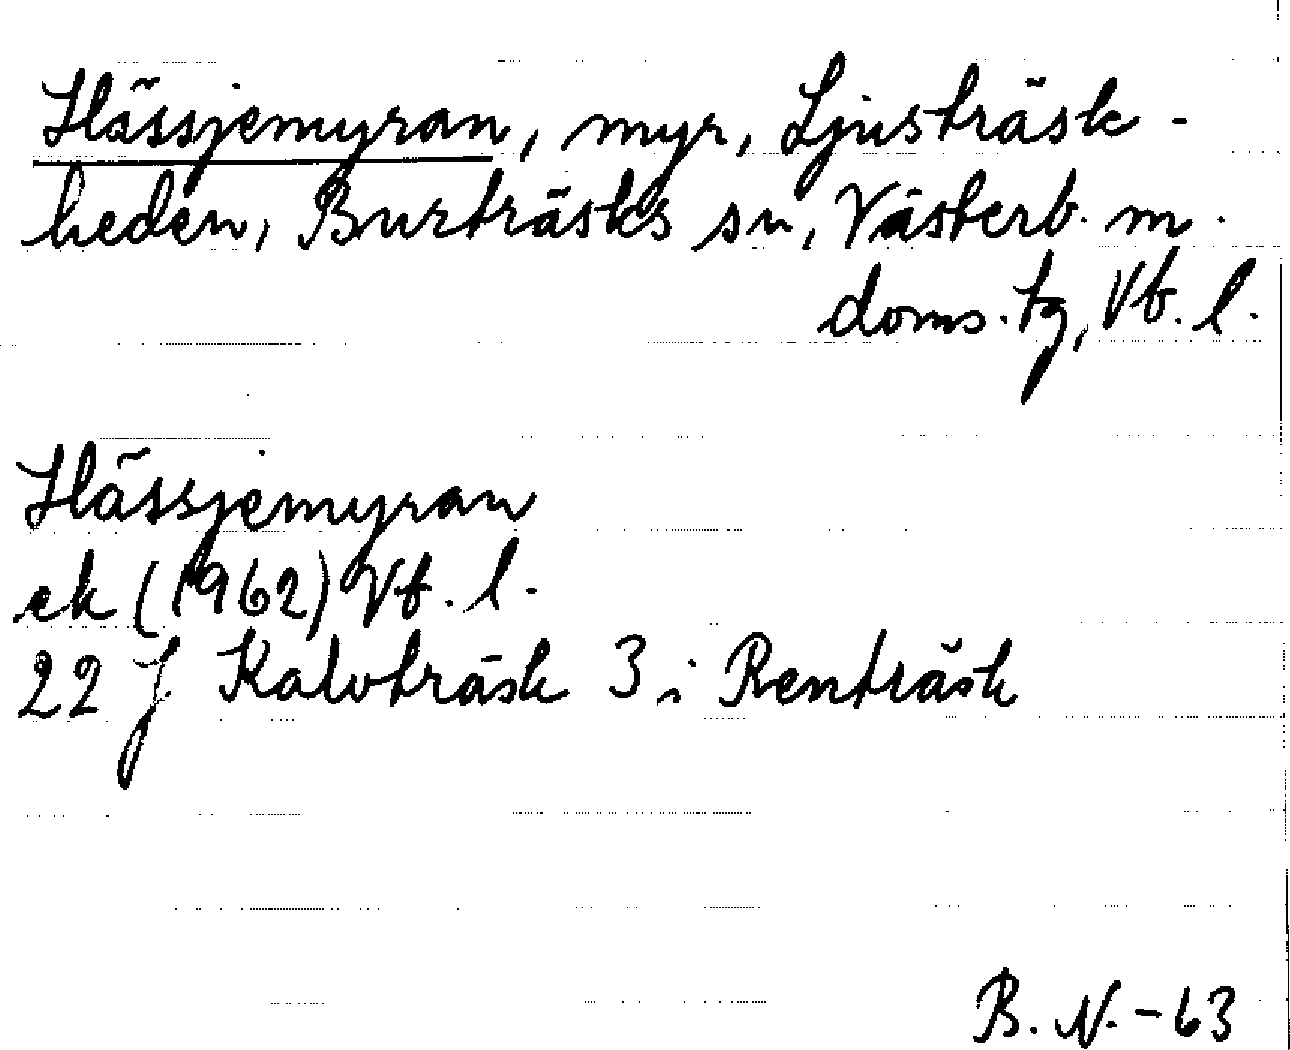 Hässjemyran, myr, Ljusträsk-
heden, Burträsks sn, Västerb. m.
doms. tg, Vb. l.
Hässjemyran
ek (1962) Vb. l.
22 J Kalvträsk 3 i Renträsk
B. N. - 63